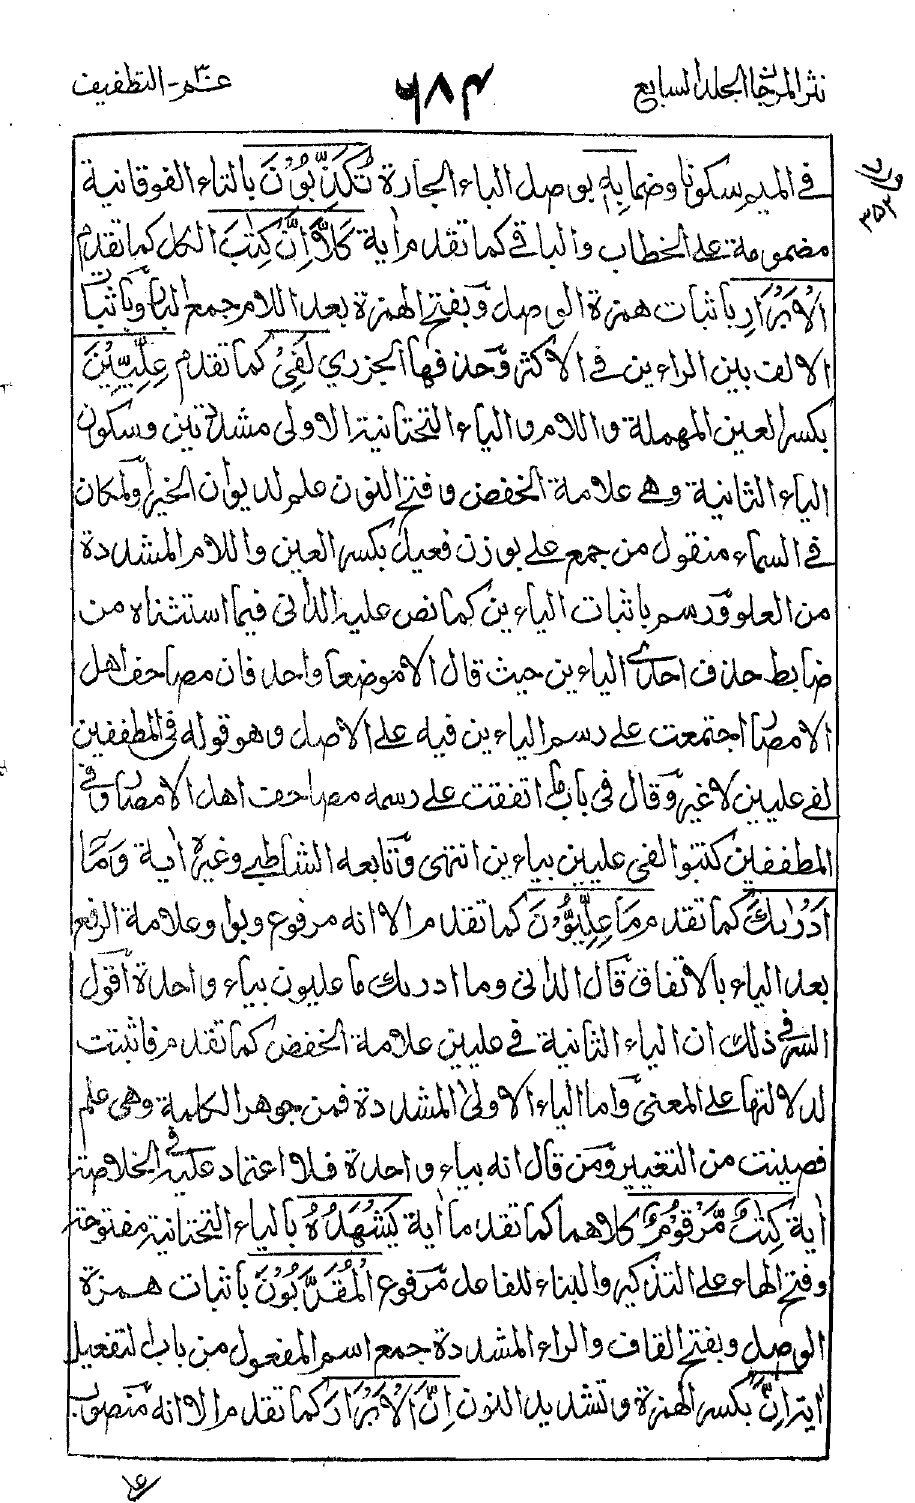 نثر المرجان المجلد السابع ٦٨٤ عم۳۰ - التطفيف
ورق ٣٥٢
في الميم سكونا وضما بِهِ بوصل الباء الجارة تُكَذِّبُوْنَ بالتاء الفوقانية
مضمومة على الخطاب والباقي كما تقدم اٰية كَلَّآ اِنَّ كِتٰبَ الكل كما تقدم
الْاَبْرَارِ باثبات همزة الوصل وبفتح الهمزة بعد اللام جمع البار وباثبات
الالف بين الراءين في الاكثر وحذفها الجزري لَفِيْ كما تقدم عِلِّيِّيْنَ
بكسر العين المهملة واللام والياء التحتانية الاولى مشددتين وسكون
الياء الثانية وهي علامة الخفض وفتح النون علم لديوان الخير او لمكان
في السماء منقول من جمع علي بوزن فعيل بكسر العين واللام المشددة
من العلو ورسم باثبات الياءين كما نص عليه الداني فيما استثناه من
ضابط حذف احدى الياءين حيث قال الا موضعا واحدا فان مصاحف اهل
الامصار اجتمعت على رسم الياءين فيه على الاصل وهو قوله في المطففين
لفي عليين لا غير وقال في باب ما اتفقت على رسمه مصاحف اهل الامصار وفي
المطففين كتبوا لفي عليين بياءين انتهى وتابعه الشاطبي وغيره اٰية وَمَآ
اَدْرٰىكَ كما تقدم مَا عِلِّيُّوْنَ كما تقدم الا انه مرفوع وبواو علامة الرفع
بعد الياء بالاتفاق قال الداني وما ادرىك ما عليون بياء واحدة اقول
السر في ذلك ان الياء الثانية في عليين علامة الخفض كما تقدم فاثبتت
لدلالتها على المعنى واما الياء الاولى المشددة فمن جوهر الكلمة وهي علم
فصينت من التغيير ومن قال انه بياء واحدة فلا اعتماد عليه في الخلاصة
اٰية كِتٰبٌ مَّرْقُوْمٌ كلاهما كما تقدما اٰية يَشْهَدُهُ بالياء التحتانية مفتوحة
وفتح الهاء على التذكير والبناء للفاعل مرفوع الْمُقَرَّبُوْنَ باثبات همزة
الوصل وبفتح القاف والراء المشددة جمع اسم المفعول من باب التفعيل
اٰية اِنَّ بكسر الهمزة وتشديد النون اِنَّ الْاَبْرَارَ كما تقدم الا انه منصوب